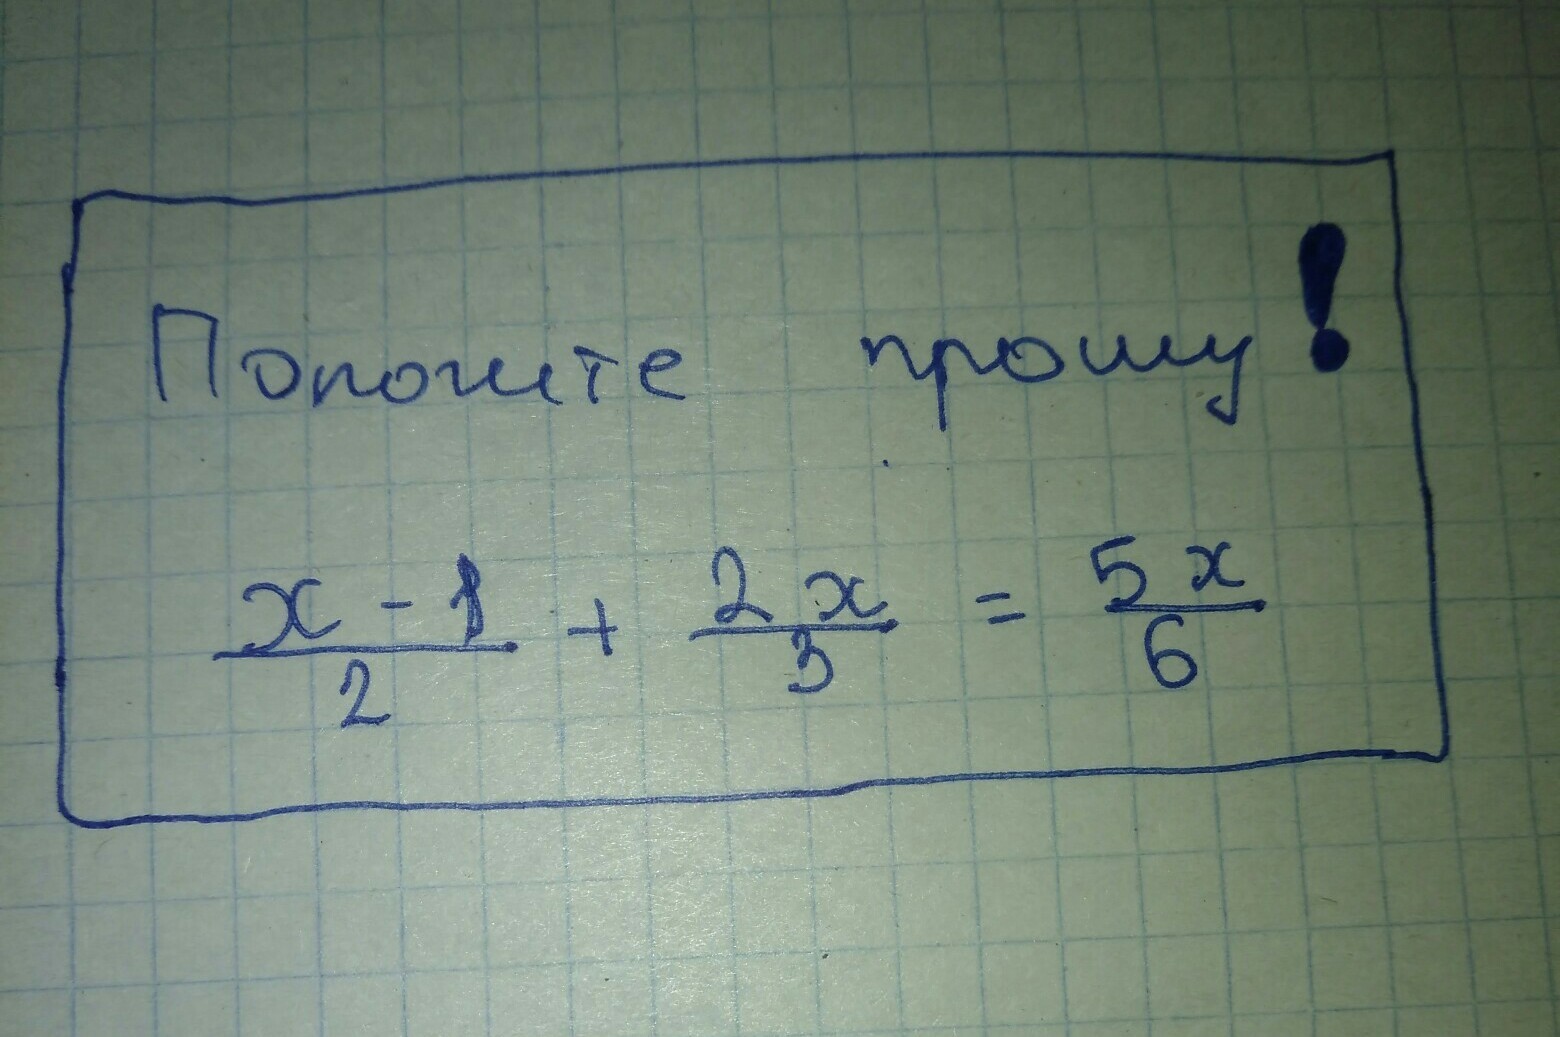 Поможите прошу!
x - 1 / 2 + 2x / 3 = 5x / 6